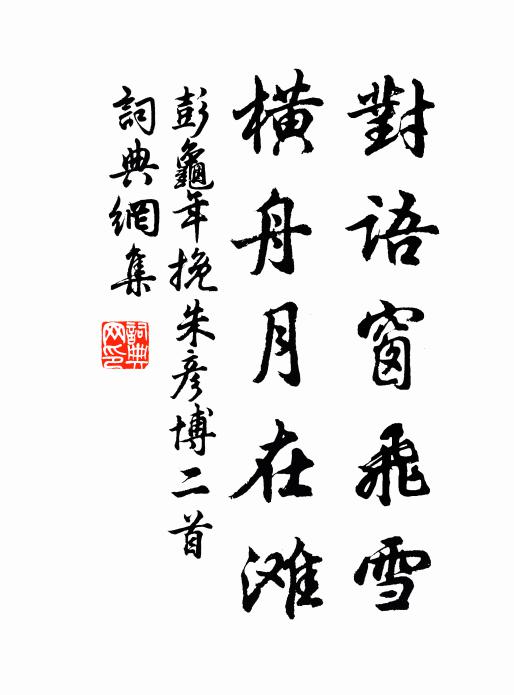 對語窗飛雪
橫舟月在滩
彭龜年挽朱彥博二首
詞典網集
詞典网印